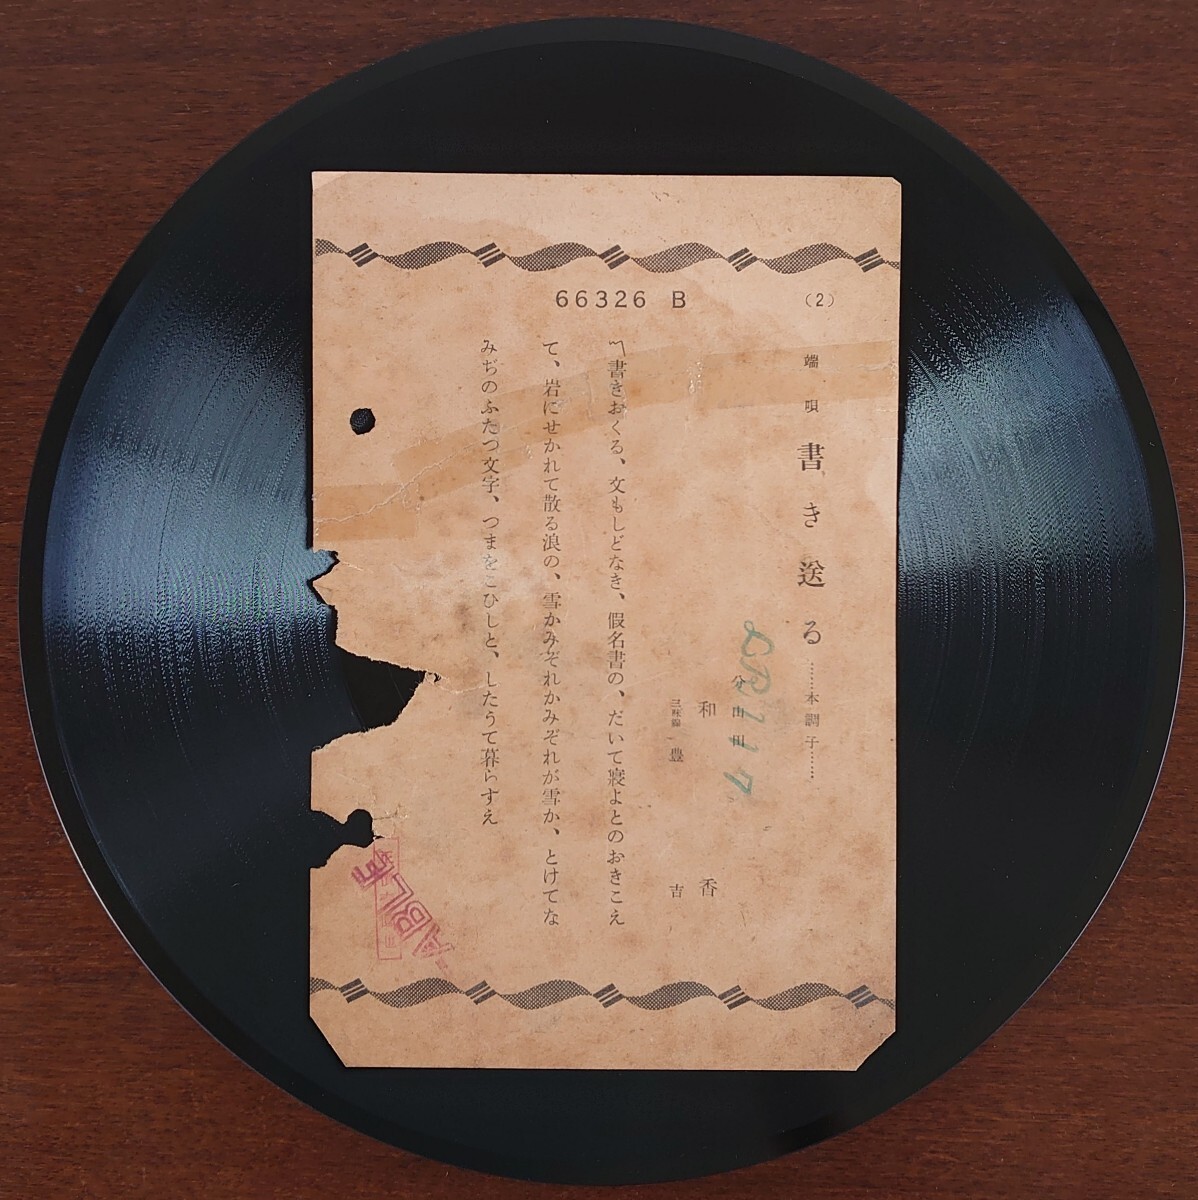 66326 B
(2)
端唄 書き送る……本調子……
和香
三味線 豊吉
〽書きおくる、文もしどなき、假名書の、だいて寢よとのおきこえ
て、岩にせかれて散る浪の、雪かみぞれかみぞれが雪か、とけてな
みぢのふたつ文字、つまをこひしと、したうて暮らすえ